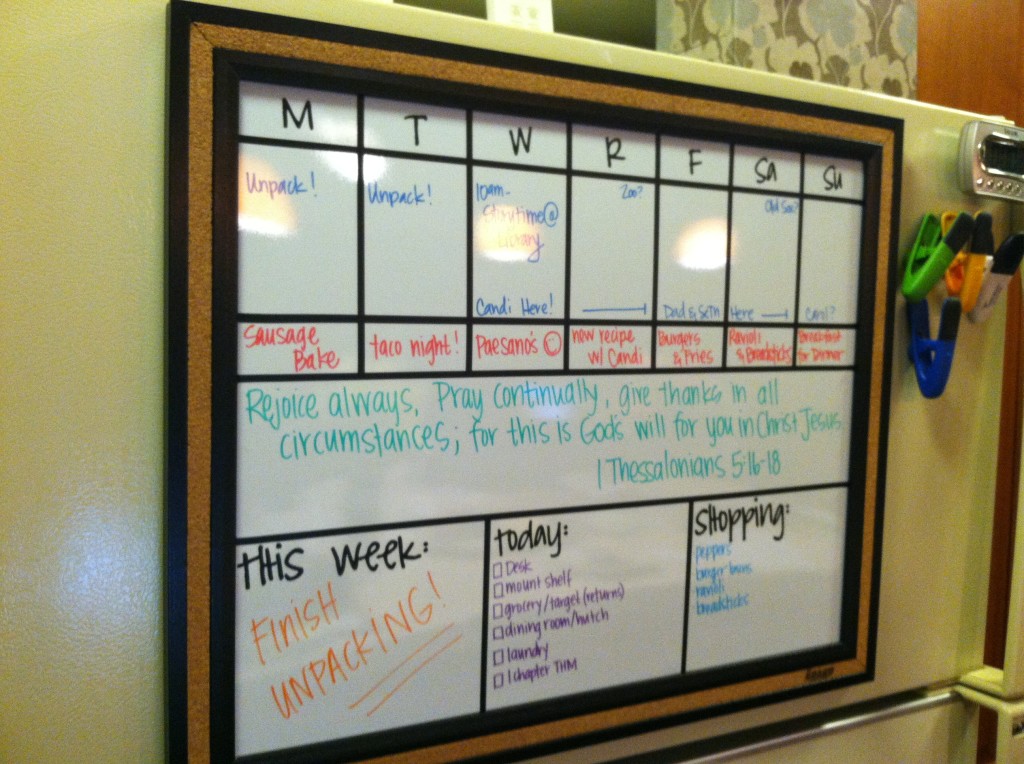 M T W R F Sa Su
Unpack!
Unpack!
10am-
Storytime@
Library
Candi Here!
Zoo?
Dad & Seth
Old Soo?
Here
Carol?
Sausage
Bake
taco night!
Paesano's
new recipe
w/ Candi
Burgers
& Fries
Ravioli
& Breadsticks
Breakfast
for Dinner
Rejoice always, Pray continually, give thanks in all
circumstances; for this is God's will for you in Christ Jesus.
1 Thessalonians 5:16-18
this week:
FINISH
UNPACKING!
today:
Desk
mount shelf
grocery/target (returns)
dining room/hutch
laundry
1 chapter THM
Shopping:
peppers
burger buns
ravioli
breadsticks